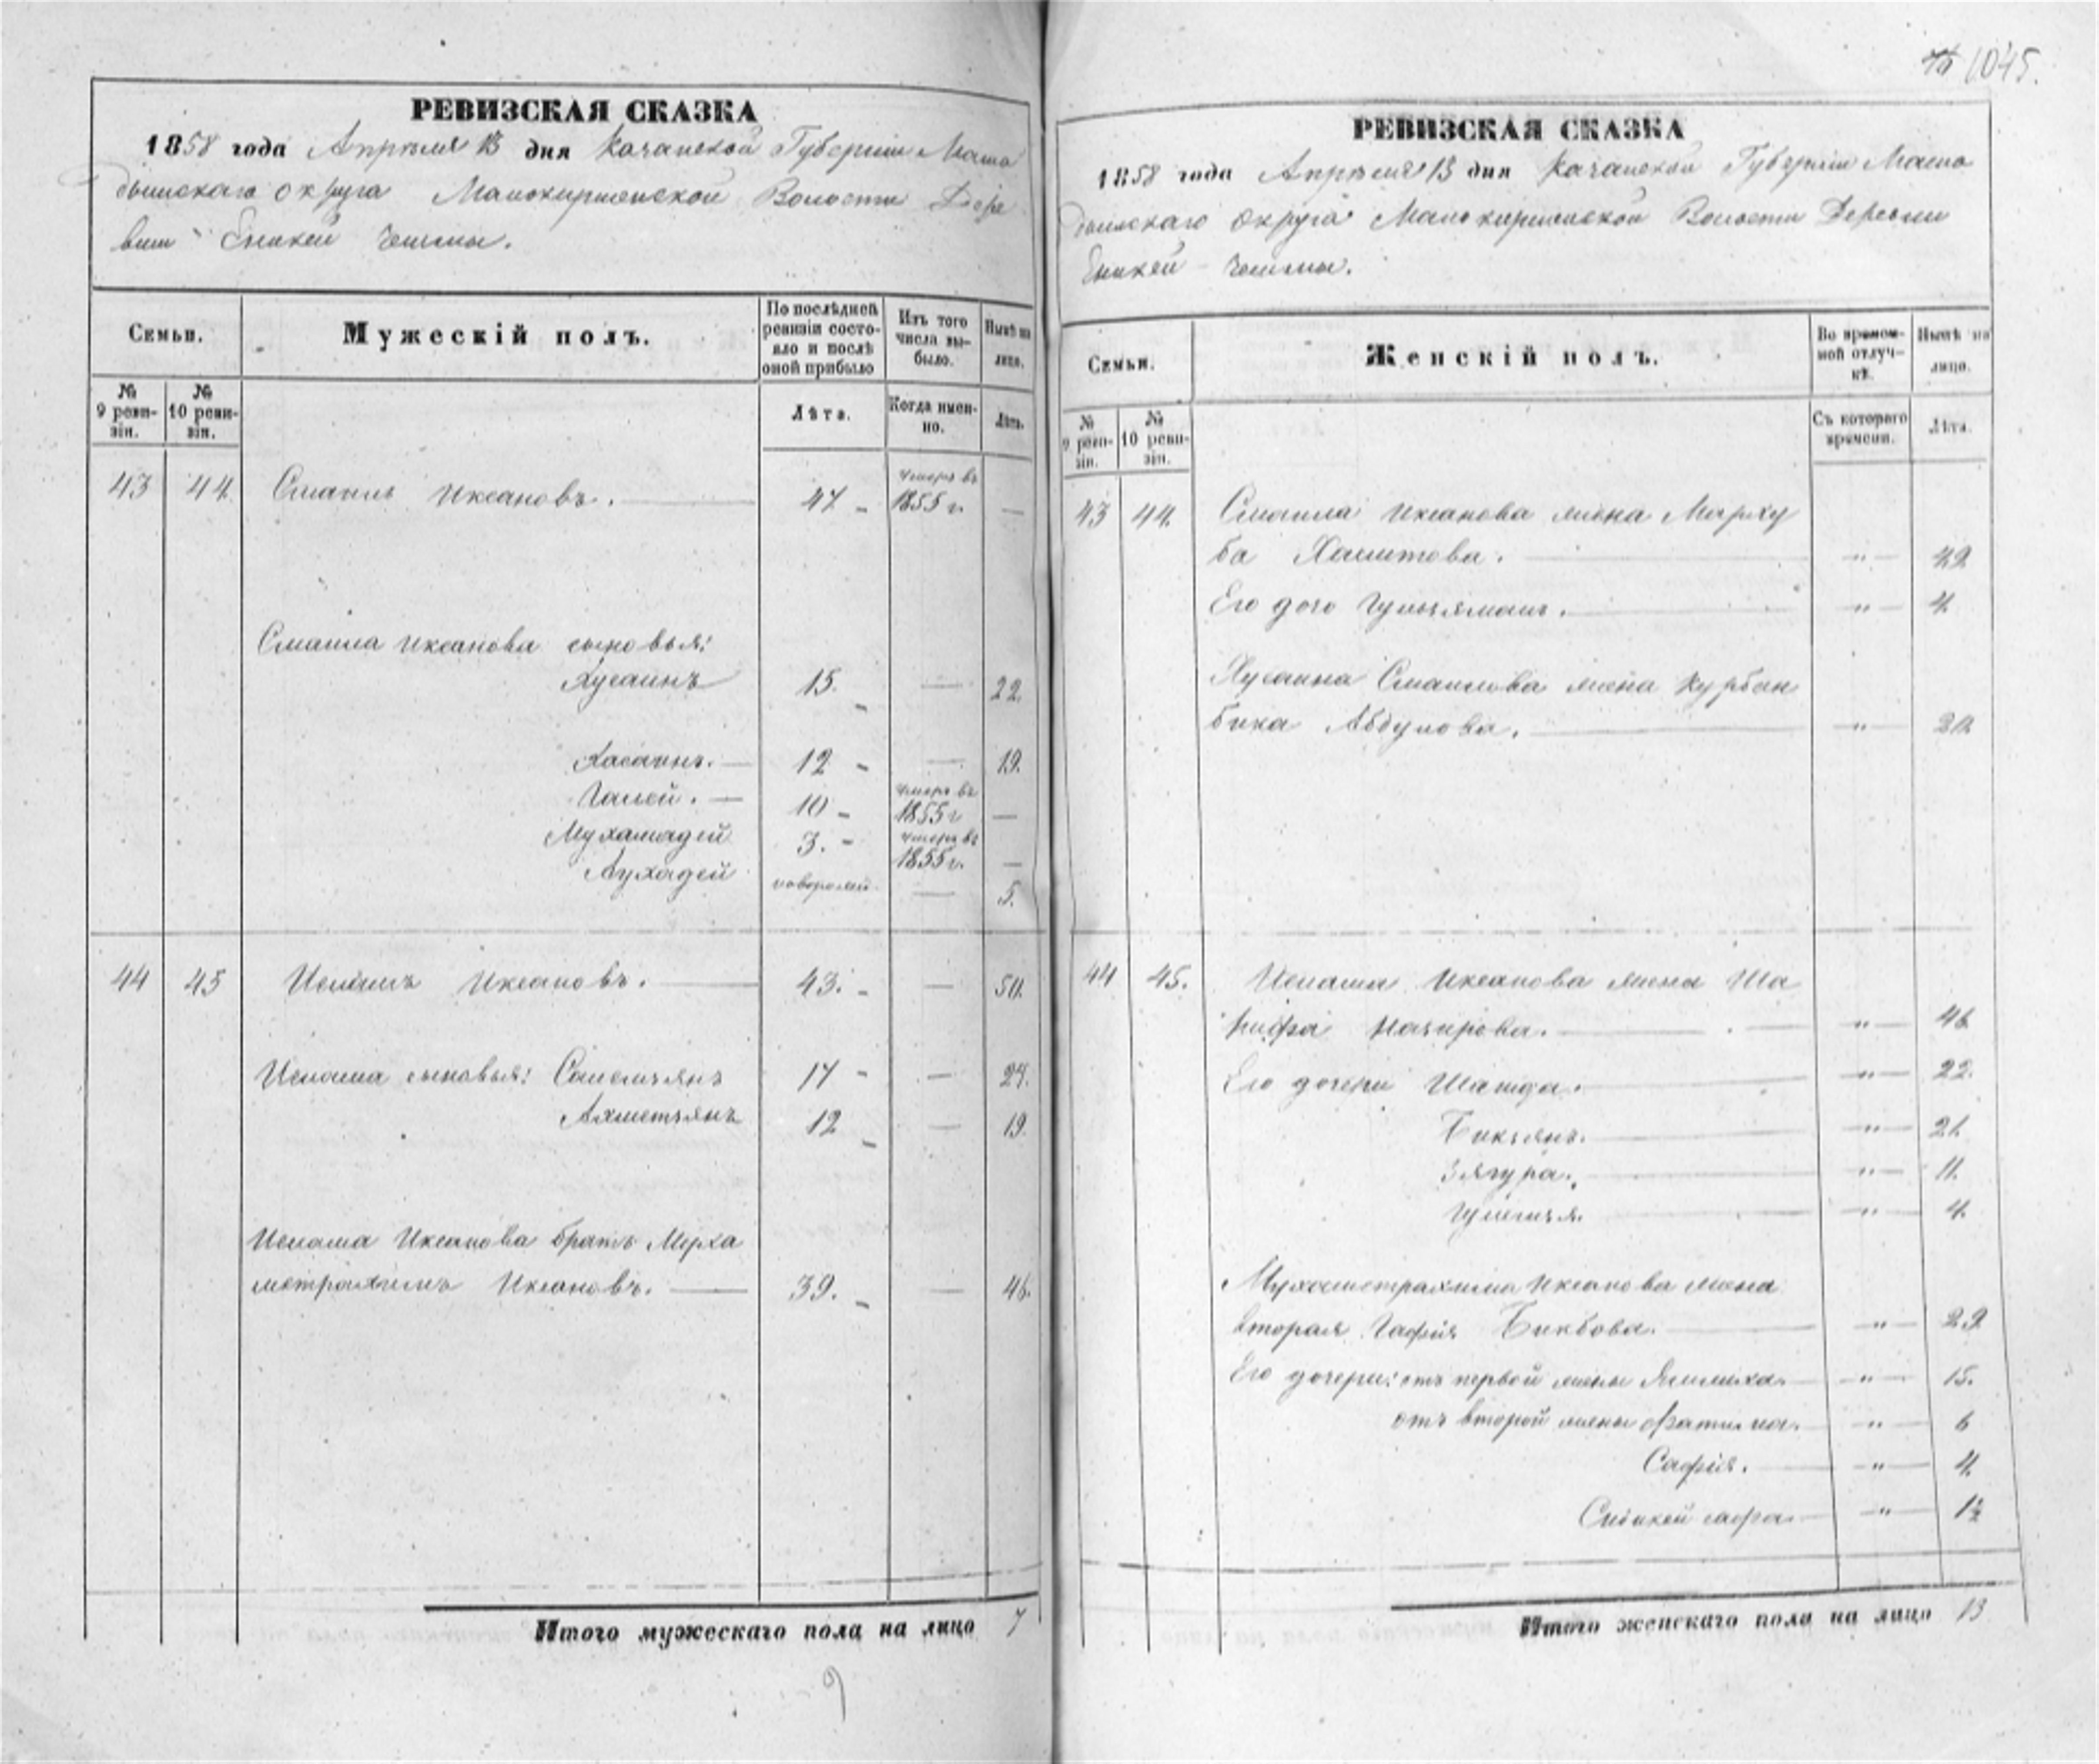 1045.
РЕВИЗСКАЯ СКАЗКА
1858 года Апреля 13 дня Казанской Губернии Мама
дышскаго округа Малокирменской Волости Дере
вни Еникей Чишмы.
Семьи.
Мужескій полъ.
По послѣдней ревизіи состояло и послѣ оной прибыло
Изъ того числа выбыло.
Нынѣ на лицо.
№ 9 ревизіи.
№ 10 ревизіи.
Лѣта.
Когда именно.
Лѣта.
43 44 Смаилъ Иксановъ. 47 умеръ въ 1855 г. —
Смаила Иксанова сыновья:
Хусаинъ 15. — 22.
Хасаинъ. — 12 — 19.
Галей. — 10 умеръ въ 1855 г —
Мухамадей 3. умеръ въ 1855 г. —
Ахмадей новорожд. — 5.
44 45 Исмашъ Иксановъ. 43. — 50.
сыновья: 17 — 24.
Ахметзянъ 12 — 19.
Иксанова братъ Муха
метрахимъ Иксановъ. — 39. — 46.
Итого мужескаго пола на лицо 7
9
РЕВИЗСКАЯ СКАЗКА
1858 года Апреля 13 дня Казанской Губернии Мама
дышскаго округа Малокирменской Волости Деревни
Еникей Чишмы.
Семьи.
Женскій полъ.
Во временной отлучкѣ.
Нынѣ на лицо.
№ 9 ревизіи.
№ 10 ревизіи.
Съ котораго времени.
Лѣта.
43 44 Смаила Иксанова жена Марху
ба Хамитова. " — 49
Его дочь " — 4
Хусаина Смаилова жена Курбан
бика Абдулова. " —
44 45. Иксанова жена Ша
рифа Назирова. " — 46
Его дочери " — 22.
Бикзянъ. " — 21.
Зягура. " — 11.
" — 4.
Мухаметрахима Иксанова жена
вторая Гафія Бикбова. " — 29
Его дочери: отъ первой жены " — 15.
отъ второй жены Фатима. " — 6
Сафія. " — 4
" — 1½
Итого женскаго пола на лицо 13